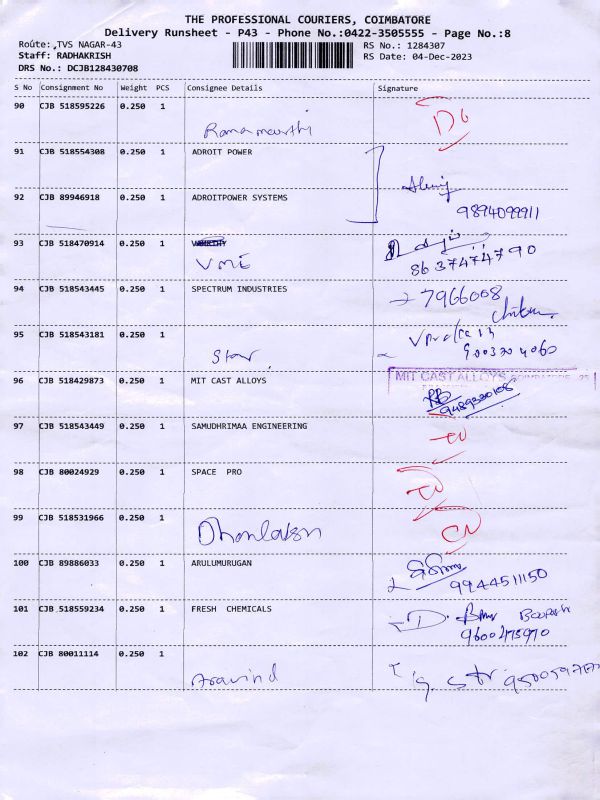 THE PROFESSIONAL COURIERS, COIMBATORE
Delivery Runsheet - P43 - Phone No.:0422-3505555 - Page No.:8
Route: ,TVS NAGAR-43 RS No.: 1284307
Staff: RADHAKRISH RS Date: 04-Dec-2023
DRS No.: DCJB128430708
S No Consignment No Weight PCS Consignee Details Signature
90 CJB 518595226 0.250 1
Ramamoorthi
91 CJB 518554308 0.250 1 ADROIT POWER
92 CJB 89946918 0.250 1 ADROITPOWER SYSTEMS
9894099911
93 CJB 518470914 0.250 1
VME 8637474790
94 CJB 518543445 0.250 1 SPECTRUM INDUSTRIES 7966008
95 CJB 518543181 0.250 1
Star 9003204060
96 CJB 518429873 0.250 1 MIT CAST ALLOYS MIT CAST ALLOYS
97 CJB 518543449 0.250 1 SAMUDHRIMAA ENGINEERING
98 CJB 80024929 0.250 1 SPACE PRO
99 CJB 518531966 0.250 1
100 CJB 89886033 0.250 1 ARULUMURUGAN
9944511150
101 CJB 518559234 0.250 1 FRESH CHEMICALS
9600475970
102 CJB 80011114 0.250 1
Aravind